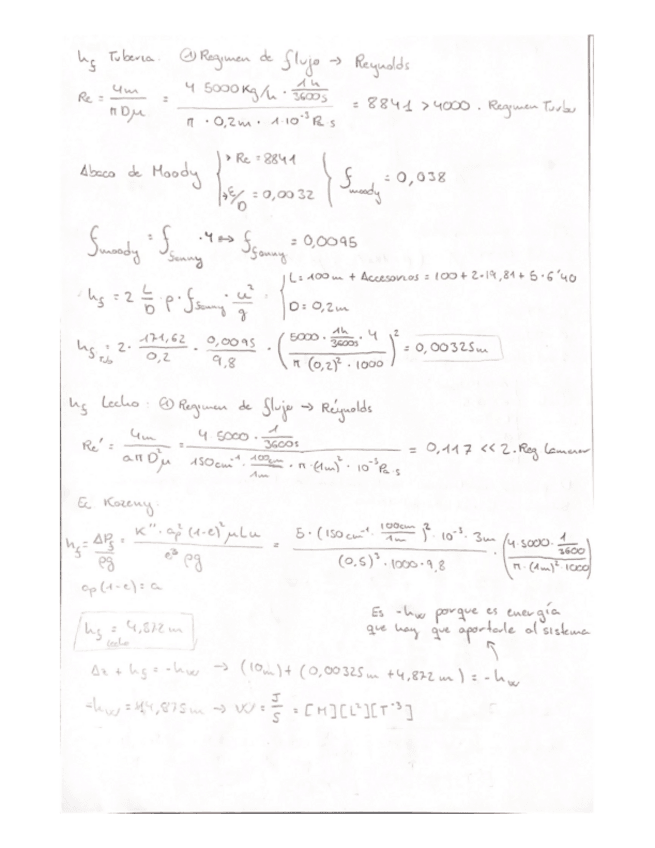 hf Tuberia. ① Regimen de flujo → Reynolds
Re = 4m / π D μ = 4 · 5000 Kg/h · 1h/3600s / π · 0,2m · 1·10⁻³ Pa·s = 8841 > 4000. Regimen Turbu
Abaco de Moody { → Re = 8841 → ε/D = 0,0032 } f moody = 0,038
f moody = f fanny · 4 ↔ f fanny = 0,0095
hf = 2 L/D · ρ · f fanny · u²/g { L = 100m + Accesorios = 100 + 2·19,81 + 5·6'40
D = 0,2m
hf tub = 2 · 171,62/0,2 · 0,0095/9,8 · (5000 · 1h/3600s · 4 / π (0,2)² · 1000)² = 0,00325m
hf Lecho: ① Regimen de flujo → Reynolds
Re' = 4m / a π D² μ = 4 · 5000 · 1/3600s / 150cm⁻¹ · 100cm/1m · π · (1m)² · 10⁻³ Pa·s = 0,117 << 2. Reg Laminar
Ec Kozeny.
hf = ΔPf/ρg = K'' · ap² (1-e)² μ L u / e³ ρg = 5 · (150cm⁻¹ · 100cm/1m)² · 10⁻³ · 3m / (0,5)³ · 1000 · 9,8 · (4 · 5000 · 1/3600 / π · (1m)² · 1000)
ap (1-e) = a
hf lecho = 4,872 m
Es -hw porque es energía
que hay que aportarle al sistema
Δz + hf = -hw → (10m) + (0,00325m + 4,872m) = -hw
-hw = 14,875m → W = J/S = [M][L²][T⁻³]